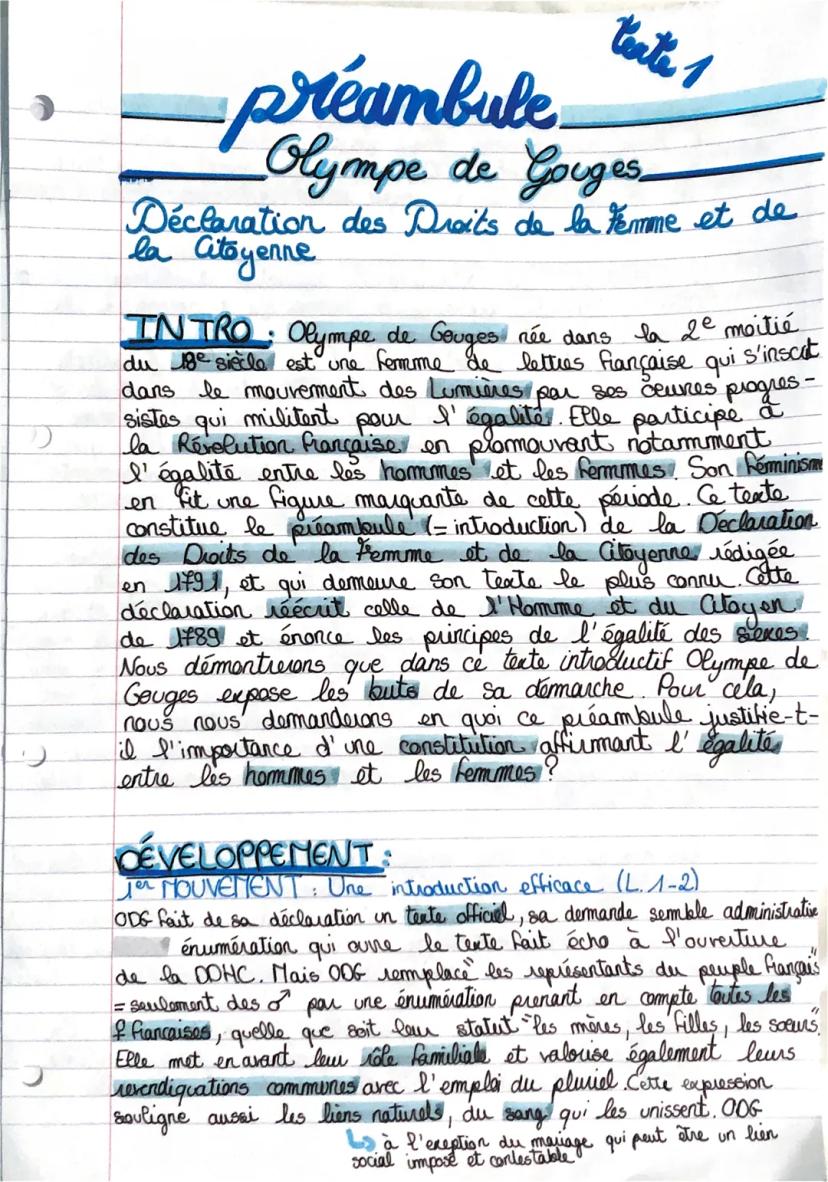 texte 1
préambule
Olympe de Gouges
Déclaration des Droits de la Femme et de
la Citoyenne
INTRO : Olympe de Gouges née dans la 2e moitié
du 18e siècle est une femme de lettres française qui s'inscrit
dans le mouvement des Lumières par ses oeuvres progres-
sistes qui militent pour l'égalité. Elle participe à
la Révolution française en promouvant notamment
l'égalité entre les hommes et les femmes. Son féminisme
en fit une figure marquante de cette période. Ce texte
constitue le préambule (= introduction) de la Déclaration
des Droits de la Femme et de la Citoyenne rédigée
en 1791, et qui demeure son texte le plus connu. Cette
déclaration réécrit celle de l'Homme et du Citoyen
de 1789 et énonce les principes de l'égalité des sexes.
Nous démontrerons que dans ce texte introductif Olympe de
Gouges expose les buts de sa démarche. Pour cela,
nous nous demanderons en quoi ce préambule justifie-t-
il l'importance d'une constitution affirmant l'égalité
entre les hommes et les femmes ?
DÉVELOPPEMENT :
1er MOUVEMENT : Une introduction efficace (L. 1-2)
ODG fait de sa déclaration un texte officiel, sa demande semble administrative
énumération qui ouvre le texte fait écho à l'ouverture
de la DDHC. Mais ODG remplace "les représentants du peuple français"
= seulement des ♂ par une énumération prenant en compte toutes les
♀ françaises, quelle que soit leur statut "les mères, les filles, les soeurs".
Elle met en avant leur rôle familiale et valorise également leurs
revendiquations communes avec l'emploi du pluriel. Cette expression
souligne aussi les liens naturels, du sang qui les unissent. ODG
↳ à l'exeption du mariage qui peut être un lien
social imposé et contestable